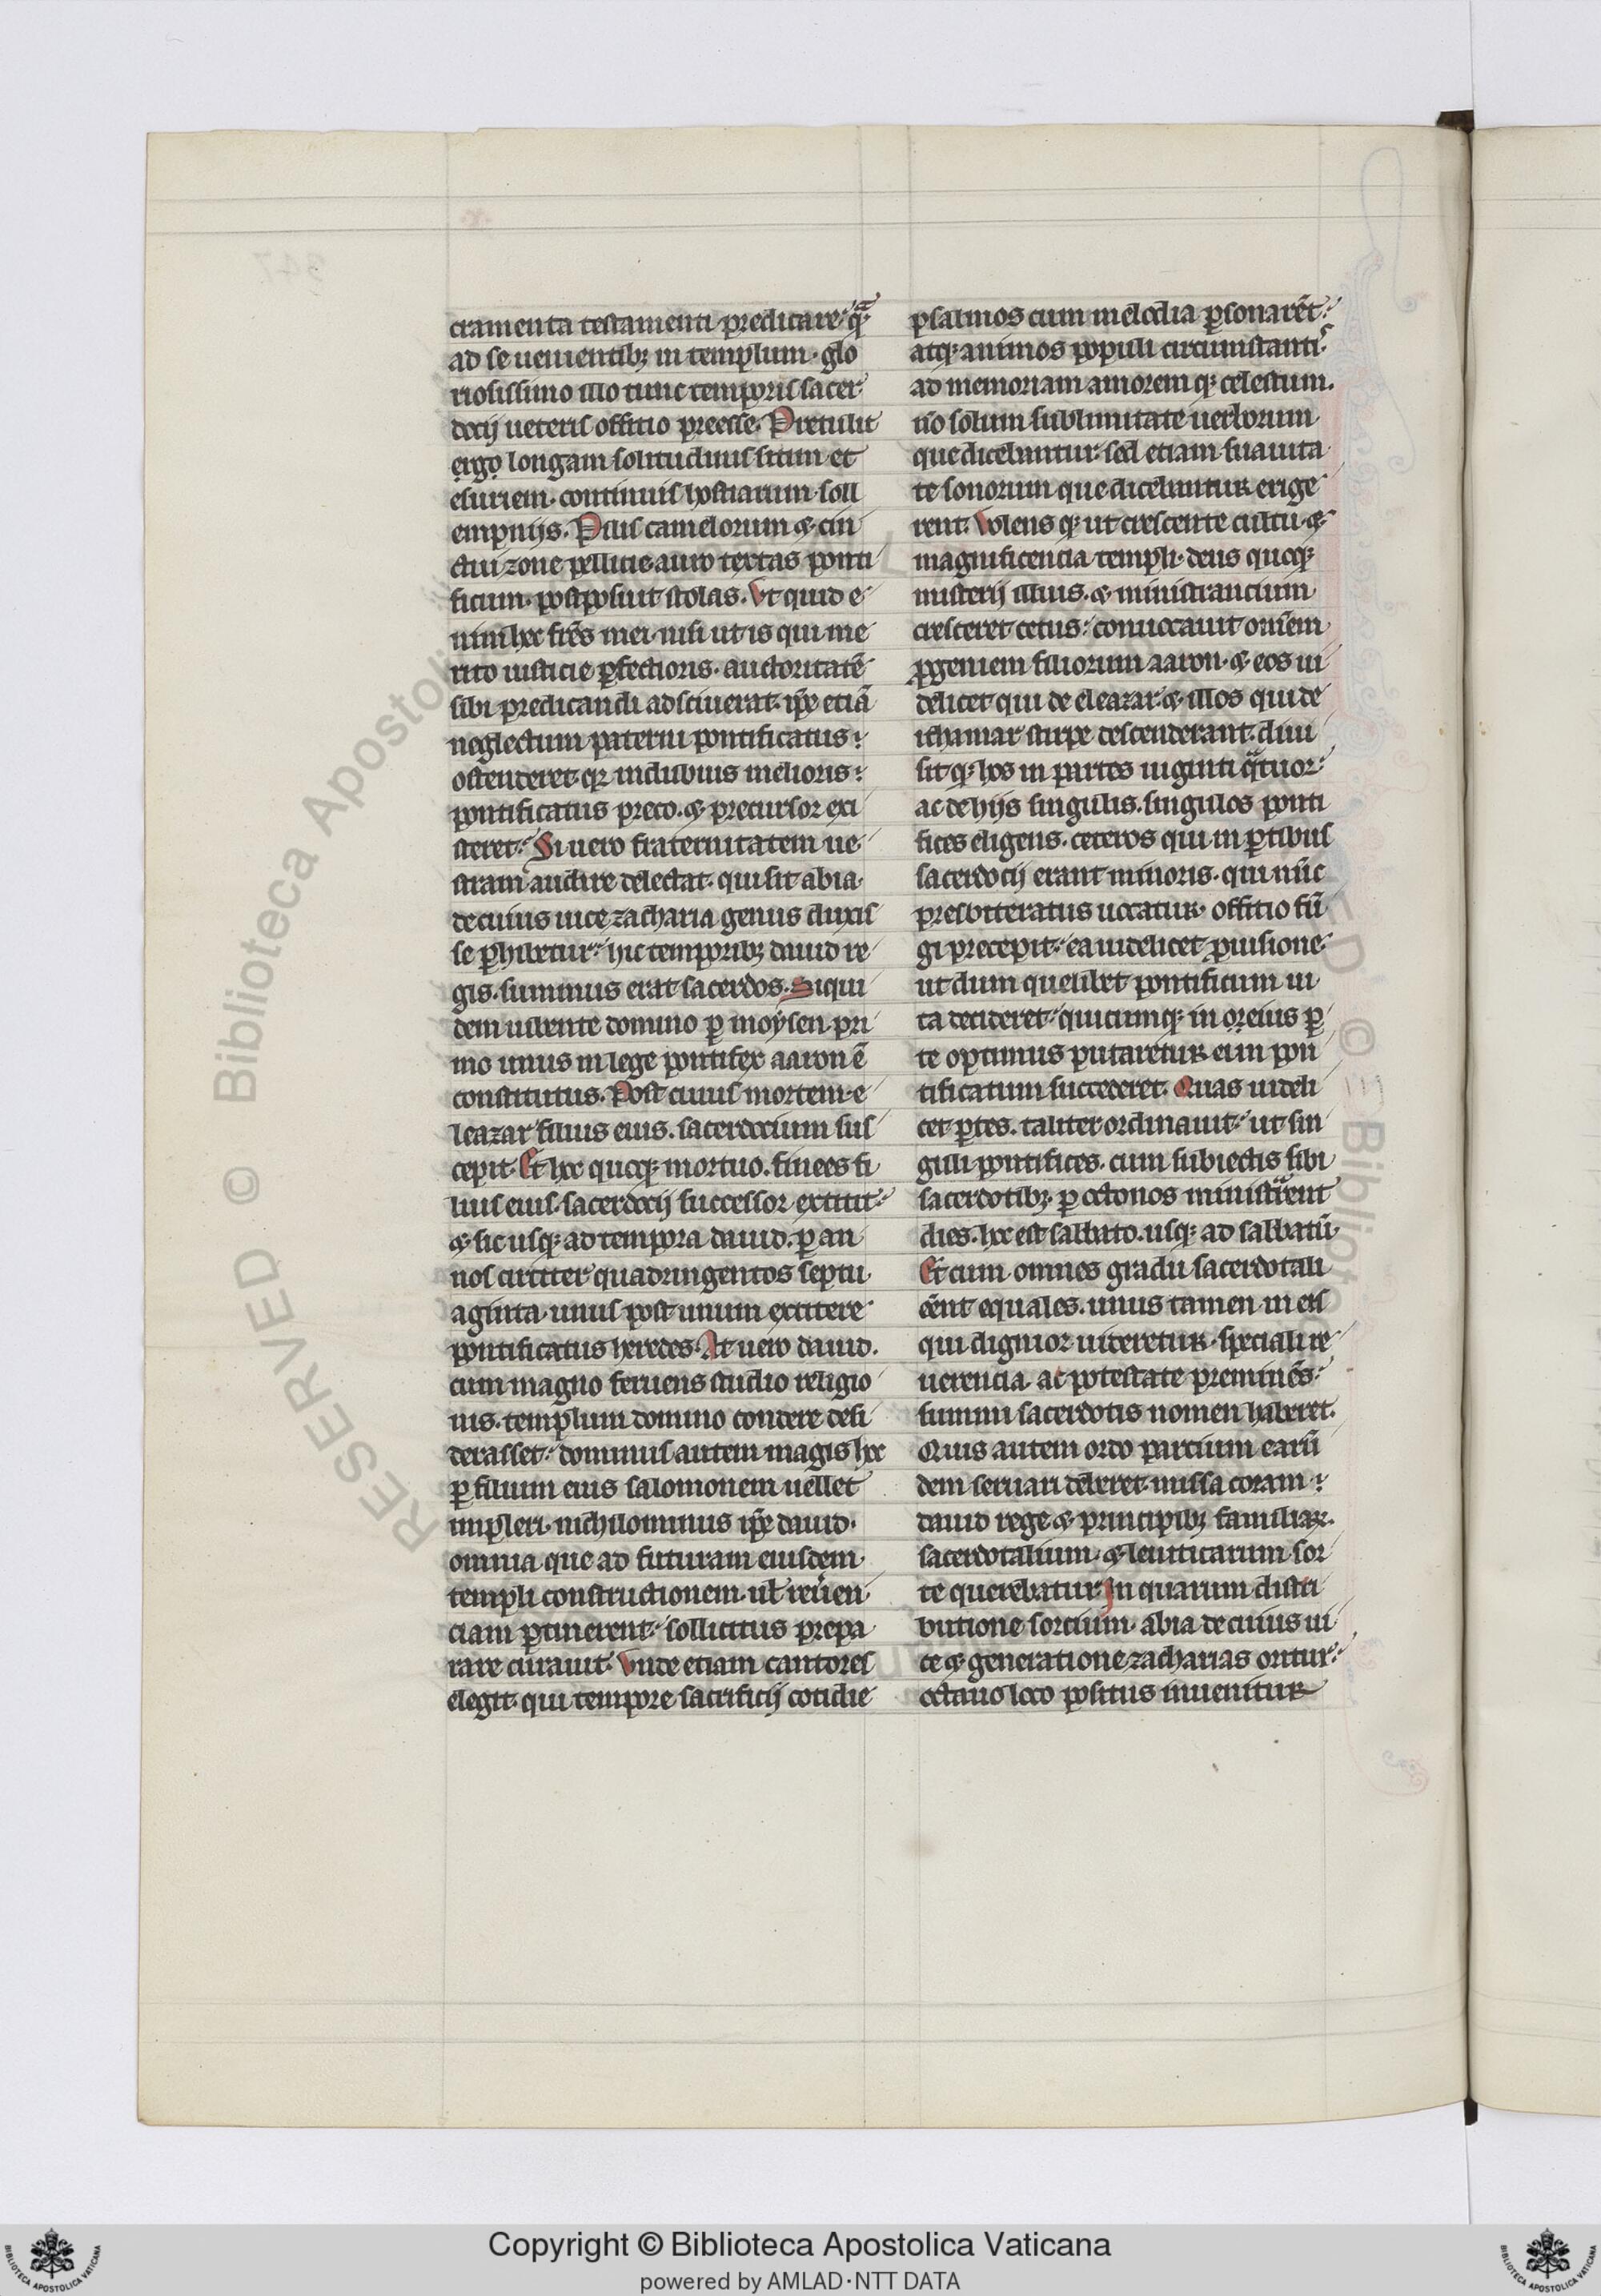 cramenta testamenti predicare qͣꝫ
ad se uenientibꝫ in templum· glo
riosissimo illo tunc temporis sacer
docij ueteris offitio preesse. Pretulit
ergo longam solitudinis sitim et
esuriem· continuis hostiarum soll
empnijs. Pilis camelorum ⁊ cin
ctui zone pellicie auro textas ponti
ficum· postposuit stolas. Vt quid e
nim hoc fr̄es mei nisi ut is qui me
rito iusticie ꝑfectioris· auctoritatē
sibi predicandi adsciuerat· ip̄e etiā
neglectum paterni pontificatus
ostenderet· qꝛ indubius melioris
pontificatus preco. ⁊ precursor exi
steret. Si uero fraternitatem ue
stram audire delectat· qui sit abia·
de cuius uice zacharia genus duxis
se ꝑhibetur· hic temporibꝫ dauid re
gis. summus erat sacerdos. Siqui
dem iubente domino ꝑ moysen· pri
mo unus in lege pontifex aaron ē
constitutus. Post cuius mortem· e
leazar filius eius. sacerdocium sus
cepit. Et hoc quoqꝫ mortuo. finees fi
lius eius· sacerdocij successor extitit·
⁊ sic usqꝫ ad tempora dauid. ꝑ an
nos circiter quadringentos septu
aginta· unus post unum extitere
pontificatus heredes. At uero dauid.
cum magno feruens studio religio
nis. templum domino condere desi
derasset· dominus autem magis hoc
ꝑ filium eius salomonem uellet
impleri· nichilominus ip̄e dauid·
omnia que ad futuram eiusdem
templi constructionem· ul̄ reuen
ciam ꝑtinerent· sollicitus prepa
rare curauit. Vnde etiam cantores
elegit· qui tempore sacrificij cotidie
psalmos cum melodia ꝑsonarēt
atqꝫ animos populi circumstantis
ad memoriam amorem qꝫ celestium.
nō solum sublimitate uerborum
que dicebantur· sed etiam suauita
te sonorum que dicebantur erige
rent. Volens qꝫ ut crescente cultu ⁊
magnificencia templi· deus quoqꝫ
misterij illius. ⁊ ministrancium
cresceret cetus· conuocauit omēm
ꝓgeniem filiorum aaron· ⁊ eos ui
delicet qui de eleazar· ⁊ illos qui de
ithamar stirpe descenderant· diui
sit qꝫ hos in partes uiginti qͣtuor·
ac de hijs singulis. singulos ponti
fices eligens. ceteros qui in ꝑtibus
sacerdocij erant minoris· qui nūc
presbiteratus uocatur· offitio fū
gi precepit· ea uidelicet ꝓuisione
ut dum quelibet pontificum ui
ta decideret· quicumqꝫ in ore eius ꝑ
te optimus putaretur ei in pon
tificatum succederet. Quas uideli
cet ꝑtes. taliter ordinauit· ut sin
guli pontifices. cum subiectis sibi
sacerdotibꝫ ꝑ octonos ministrent
dies. hoc est sabbato. usqꝫ ad sabbatū·
Et cum omnes gradu sacerdotali
eēnt equales. unus tamen in eis
qui dignior uideretur· speciali re
uerencia ac potestate preminēs·
summi sacerdotis nomen haberet.
Quis autem ordo parcium earū
dem seruari deberet· missa coram
dauid rege ⁊ principibꝫ familiaꝝ
sacerdotalium· ⁊ leuiticarum sor
te querebatur. In quarum distri
butione sorcium· abia de cuius ui
ce ⁊ generatione zacharias oritur·
octauo loco positus inuenitur
Copyright © Biblioteca Apostolica Vaticana
powered by AMLAD·NTT DATA